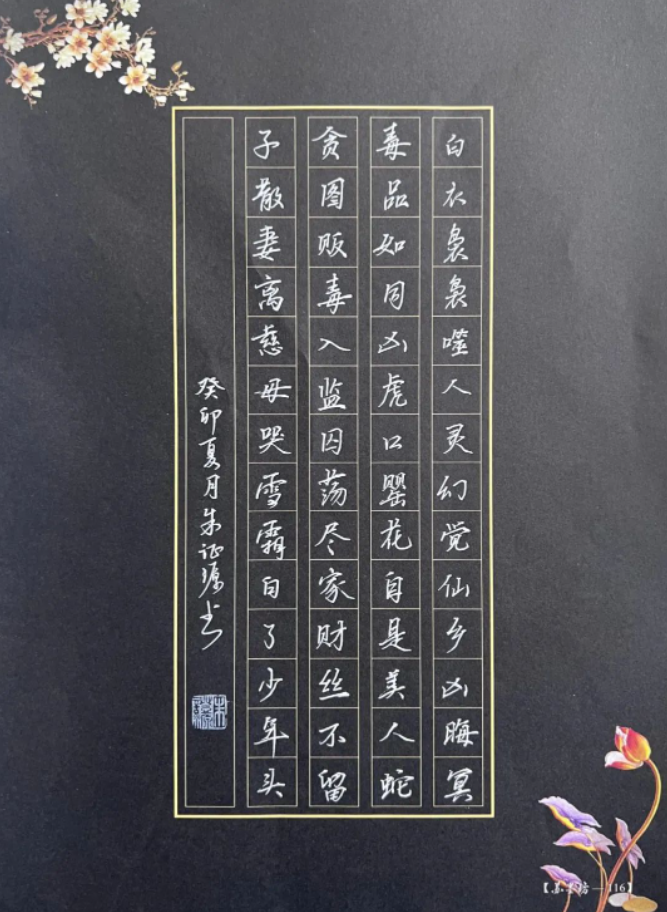 白衣袅袅噬人灵幻觉仙乡凶晦冥
毒品如同凶虎口罂花自是美人蛇
贪图贩毒入监囚荡尽家财丝不留
子散妻离慈母哭雪霜白了少年头
癸卯夏月朱证源书
116